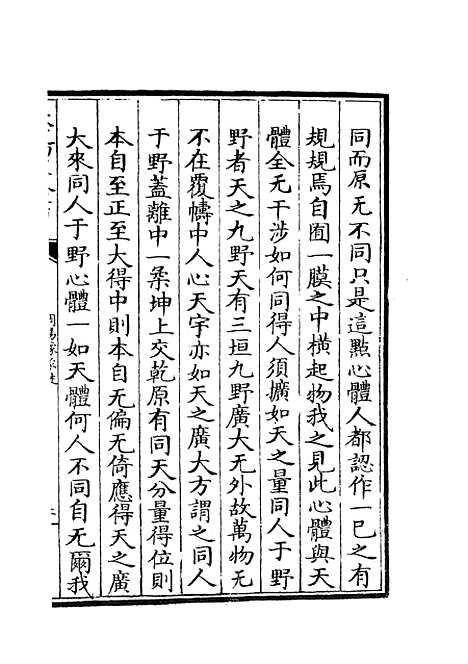 同而原无不同只是這點心體人都認作一已之有
規規焉自囿一膜之中横起物我之見此心體與天
體全无干涉如何同得人須擴如天之量同人于野
野者天之九野天有三垣九野廣大无外故萬物无
不在覆幬中人心天宇亦如天之廣大方謂之同人
于野蓋離中一柔坤上交乾原有同天分量得位則
本自至正至大得中則本自无偏无倚應得天之廣
大來同人于野心體一如天體何人不同自无爾我